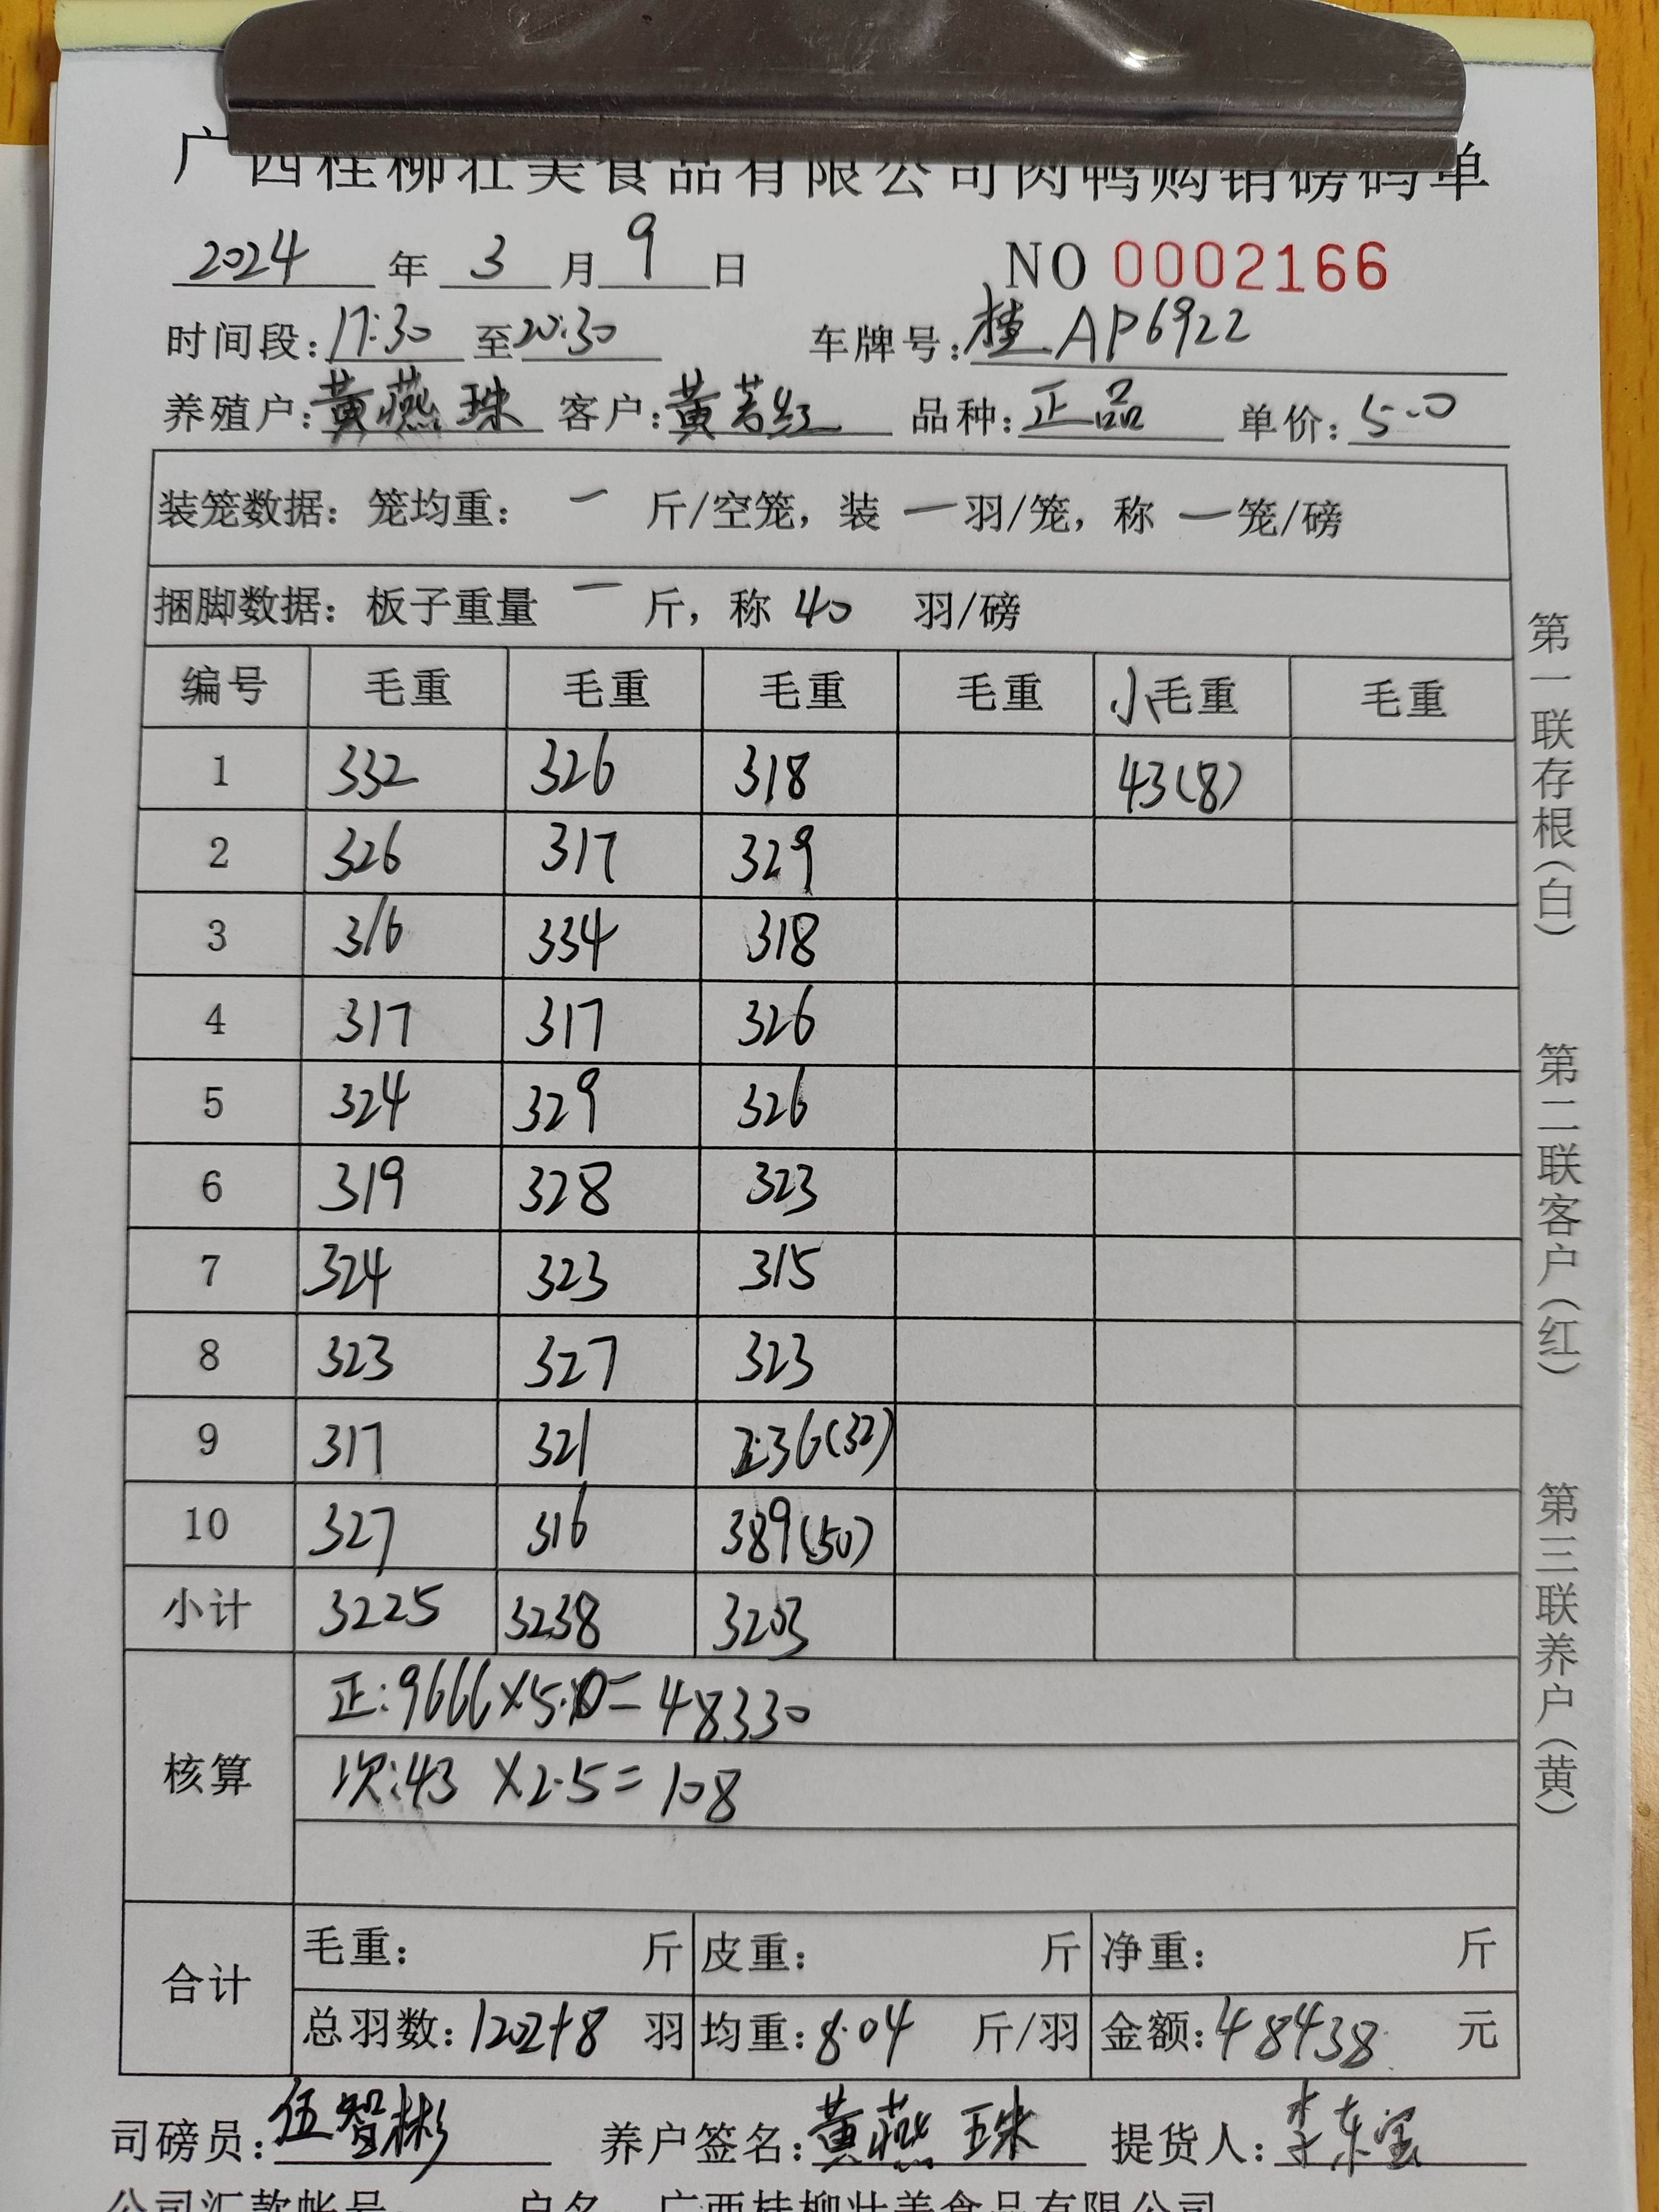 广西桂柳壮美食品有限公司肉鸭购销磅码单
2024 年 3 月 9 日 NO 0002166
时间段:17:30 至 20:30 车牌号:桂AP6922
养殖户:黄燕珠 客户:黄芳红 品种:正品 单价:5.0
装笼数据:笼均重: 一 斤/空笼,装 一 羽/笼,称 一 笼/磅
捆脚数据:板子重量 一 斤,称 40 羽/磅
编号 毛重 毛重 毛重 毛重 小毛重 毛重
1 332 326 318 43(8)
2 326 317 329
3 316 334 318
4 317 317 326
5 324 329 326
6 319 328 323
7 324 323 315
8 323 327 323
9 317 321 236(32)
10 327 316 389(50)
小计 3225 3238 3203
核算
正:9666×5.0=48330
次:43 ×2.5=108
合计
毛重: 斤 皮重: 斤 净重: 斤
总羽数:1202+8 羽 均重:8.04 斤/羽 金额:48438 元
司磅员:伍智彬 养户签名:黄燕珠 提货人:李东宝
公司汇款帐号: 户名:广西桂柳壮美食品有限公司
第一联存根(白)
第二联客户(红)
第三联养户(黄)